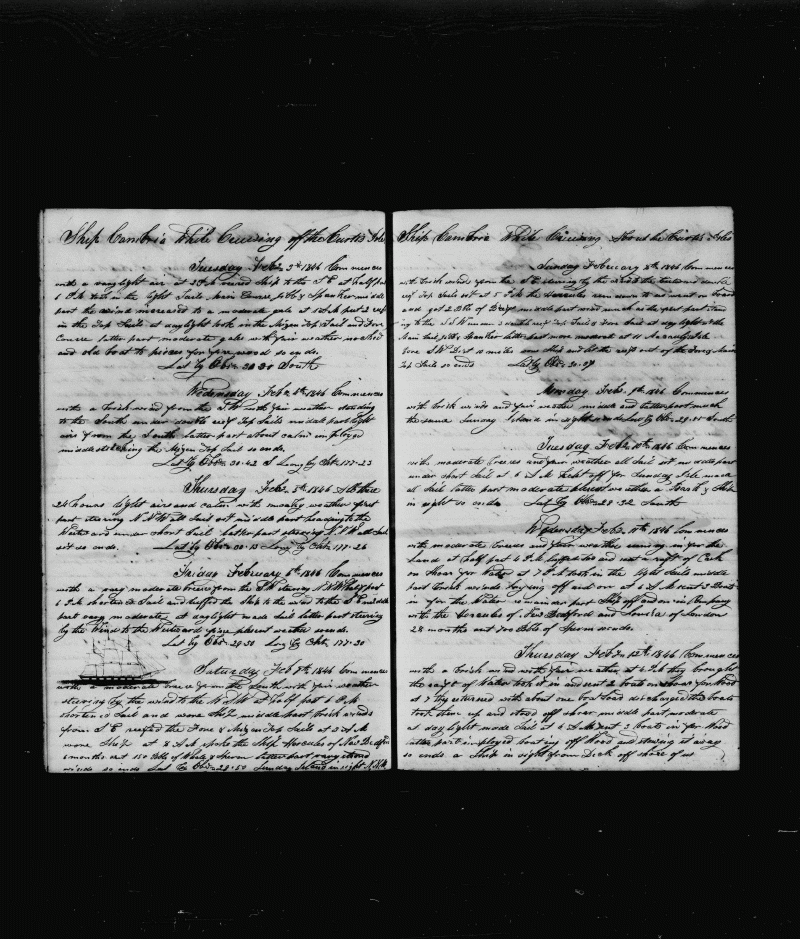 Ship Cambria While Cruising off the Curtis Isles
Tuesday Feb 3d 1846 Commences
with a very light air at 2 P.M wored Ship to the S E at half past
6 P.M took in the light Sails main Course jib & Spanker middle
part the wind increased to a moderate gale at
in the Top Sails at daylight took in the Mizen Top Sail and Fore
Course latter part moderate gale with fair weather
and old boat to pieces for fire wood so ends
Lat by Obs 30 30 South
Wednesday Feb 4th 1846 Commences
with a brisk wind from the S W with fair weather steering
to the South under double reef Top Sails middle part light
airs from the South latter part about calm employed
middle stitching the Mizen Top Sail so ends.
Lat by Obs 30.42 S Long by Chr 177-23
Thursday Feb 5th 1846 All these
24 hours light airs and calm with weather first
part steering N N W all Sail out middle part heading to the
Westward under short Sail latter part steering N N W all Sail
out so ends. Lat by Obs 30.10 Long by Chr 177-26
Friday February 6th 1846 Commences
with a very moderate breeze from the S W steering N N W half past
6 P.M shortend Sail and luffed the Ship to the wind to the S E middle
part very moderate at daylight made Sail latter part steering
by the Wind to the Westward fine plesent weather so ends.
Lat by Obs 29.50 Long by Chr 177-30
Saturday Feb 7th 1846 Commences
with a moderate breeze from the South with fair weather
steering by the wind to the W S W at half past 6 P.M
shortend Sail and wore Ship middle part brisk winds
from S E reefed the Fore & Mizen Top Sails at 2 A.M
wore Ship at 8 A.M spoke the Ship Hercules of New Bedford
6 months out 150 bbls of Whale & Sperm latter part very strong
winds so ends Lat by Obs 28-50 Sunday Island in sight N.N.W
Ship Cambria While Cruising About the Curtis Isles
Sunday February 8th 1846 Commences
with brisk winds from the S E steering by the wind to the
reef Top Sails out at 5 P.M the Hercules run down to us went on board
and got 2 bbls of middle part wind much as the first part steer-
ing to the S S W under double reef Top Sails & Fore Sail at daylight set the
Main Sail jibb & Spanker latter part more moderate at 11 A.M
S W Dist 20 miles and let the reefs out of the Fore & Main
Top Sails so ends Lat by Obs 30.07
Monday Feb 9th 1846 Commences
with brisk winds and fair weather middle and latter part much
the same Sunday Island in sight so ends Lat by Obs 29.25 South
Tuesday Feb 10th 1846 Commences
with moderate breezes and fair weather all Sail out middle part
under short Sail at 6 A.M kept off for Sunday Isle made
all Sail latter part moderate plesent weather a Brack & Ship
in sight so ends Lat by Obs 29 32 South
Wednesday Feb 11th 1846 Commences
with moderate breezes and fair weather runing in for the
Land at half past 6 P.M and sent a raft of Cask
on Shoar for Water at 7 P.M took in the light Sails middle
part brisk winds laying off and on at 6 A.M sent 2 Boats
in for the Water remainder part Ship off and on in Company
with the Hercules of New Bedford and of London
28 months out 700 bbls of Sperm so ends.
Thursday Feb 12th 1846 Commences
with a brisk wind with fair weather at 4 P.M they brought
the raft of Water took it in and sent 2 boats on Shoar for Wood
at 7 they returned with about one boat load discharged the boats
took them up and stood off shoar middle part moderate
at daylight made Sail at 6 A.M sent 2 boats in for Wood
latter part imployed boating off Wood and stowing it away
so ends a Ship in sight from Deck off shore of us